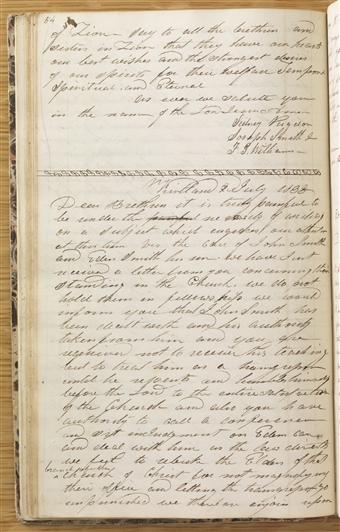 54
of Zion - Say to all the brethren and
sisters in Zion that they have our hearts
our best wishes and the strongest desires
of our spirits for their welfare temporal
spiritual and Eternal
As ever we salute you
in the name of the Lord Jesus Amen
Sidney Rigdon
Joseph Smith Jr
F. G. Williams
Kirtland 2 July 1833
Dear Brethren it is truly painful to
be under the painful necesity of writing
on a subject which engages our attention
at this time viz the Case of John Smith
and Eden Smith his son we have Just
received a letter from you concerning their
standing in the Church we do not
hold them in fellowship we would
inform you that John Smith has
been dealt with and his authority
taken from him and you are
required not to receive his teaching
but to treat him as a transgressor
untill he repents and humble himself
before the Lord to the entire satisfaction
of the Church and also you have
authority to call a conference
and sit in Judgment on Eden case
and deal with him as the law directs
we feel to rebuke the Elders of that
branch of the
Church of Christ for not magnifying
their office and letting the transgressor go
unpunished we therefore injoin upon